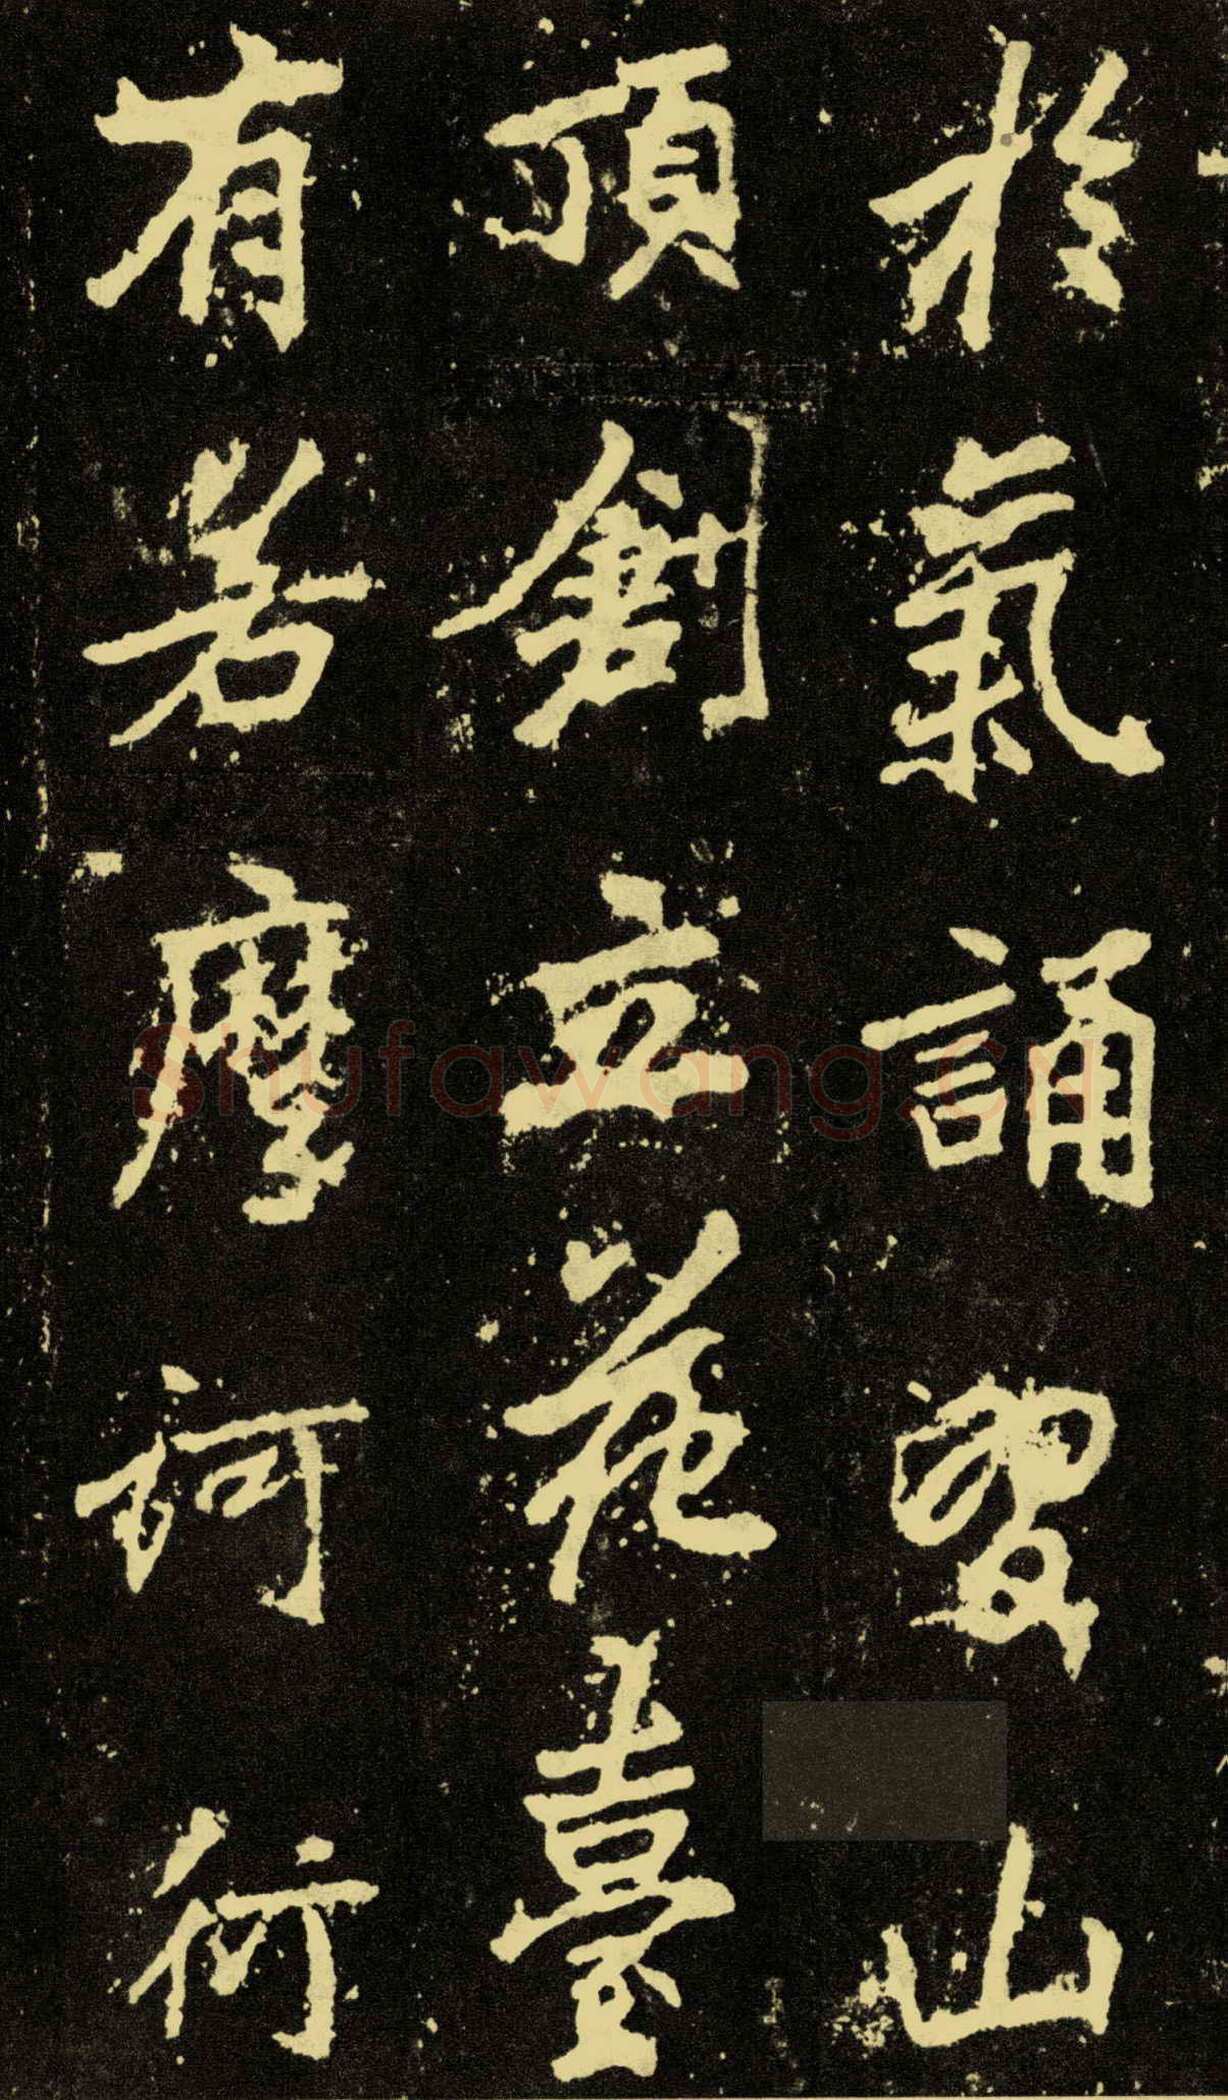 於氣誦山
頂創立花臺
有若摩訶衍
Shufawang.CN